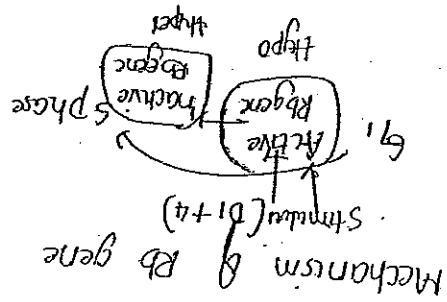 Mechanism of Rb gene
Stimulus (D1+4)
G1
Active
Rb gene
Inactive
Rb gene
S phase
Hypo
Hyper